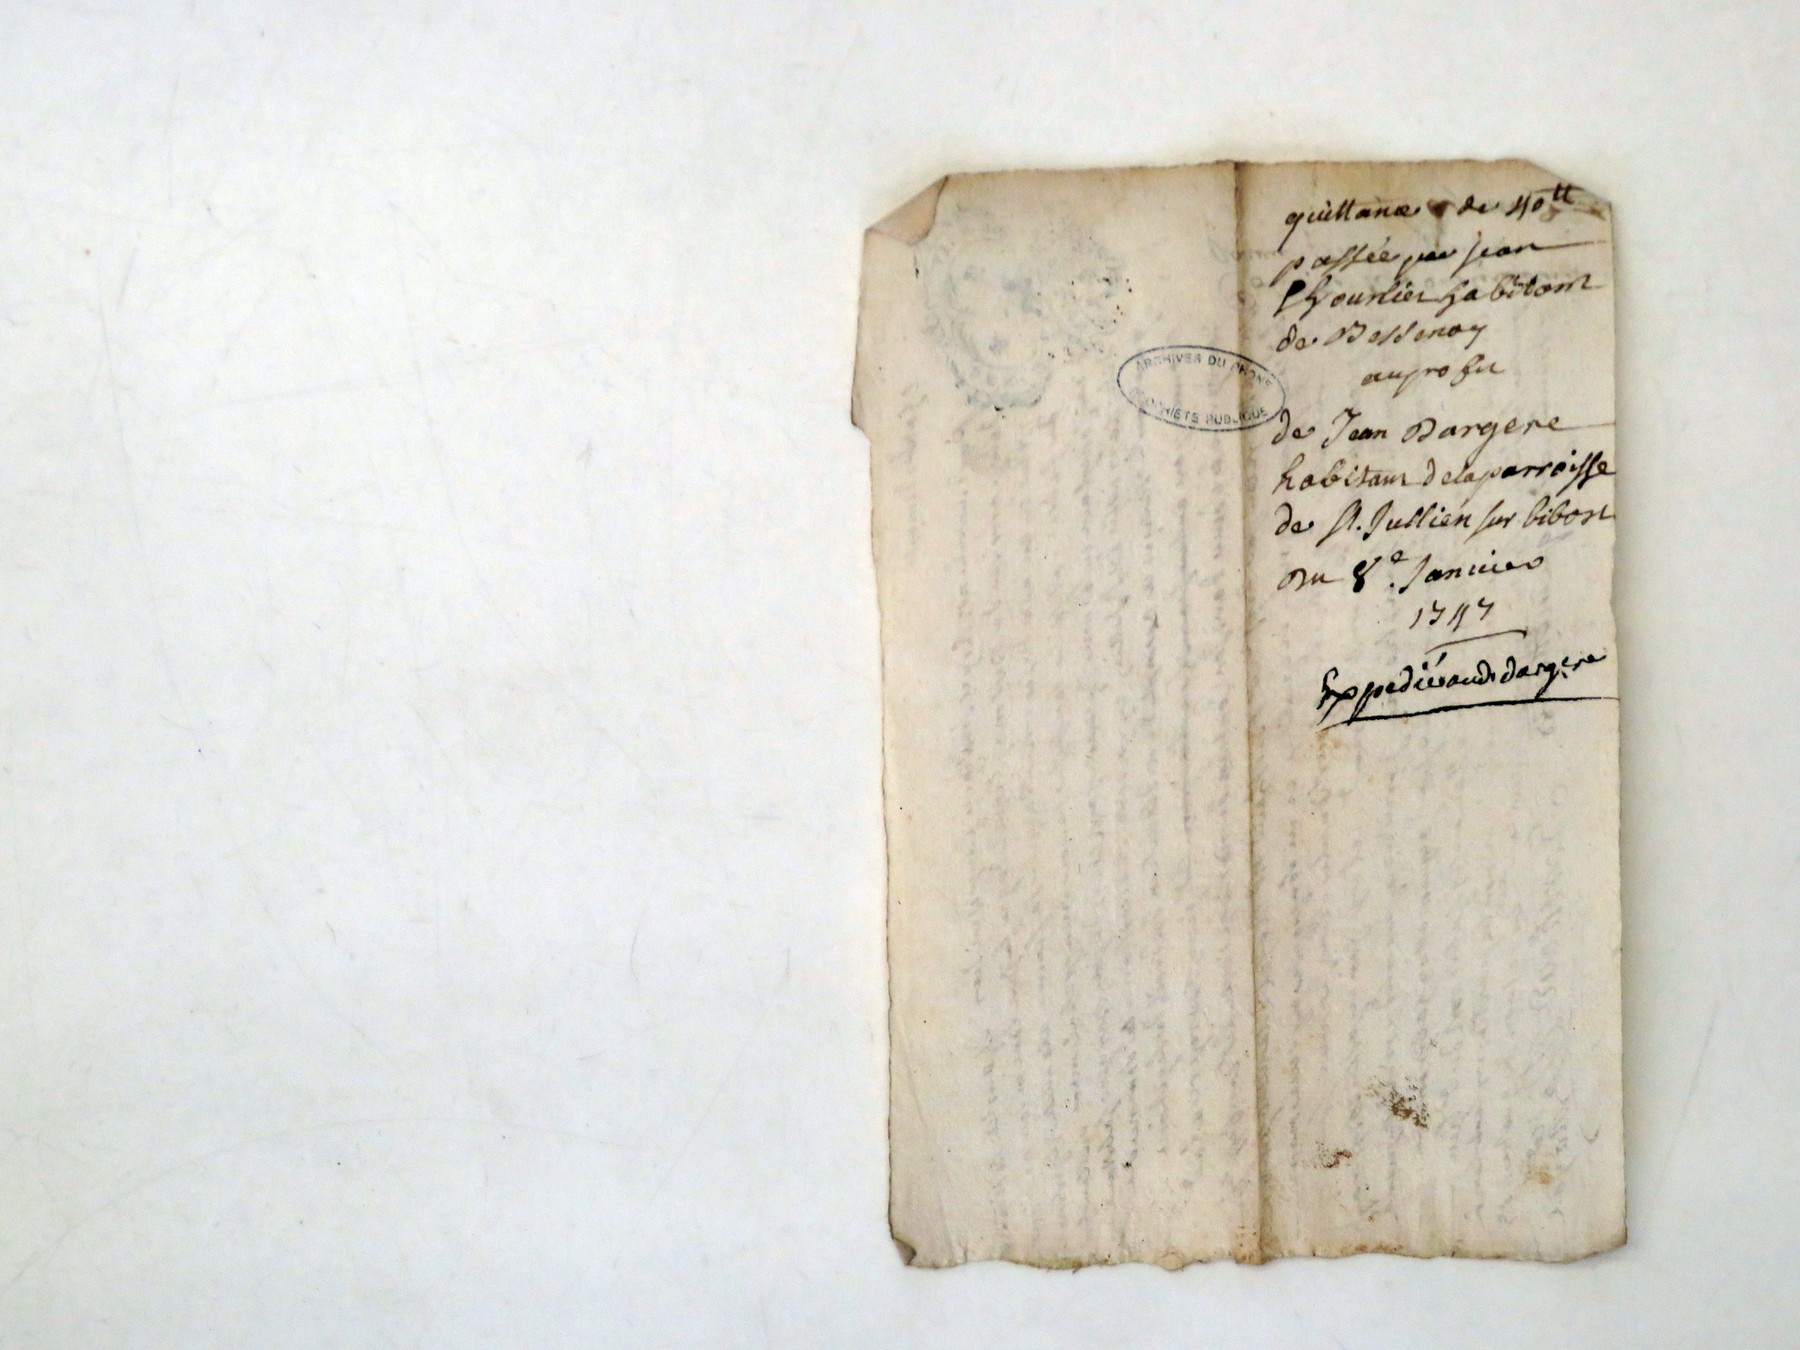 ARCHIVES DU RHONE
PROPRIETE PUBLIQUE
quittance de 40tt
passée par jean
habitant
de Bessenay
au profit
de Jean Dargere
habitant de la parroisse
de St. Jullien sur bibost
Du 8e. Janvier
1747
Expedié aud. dargere